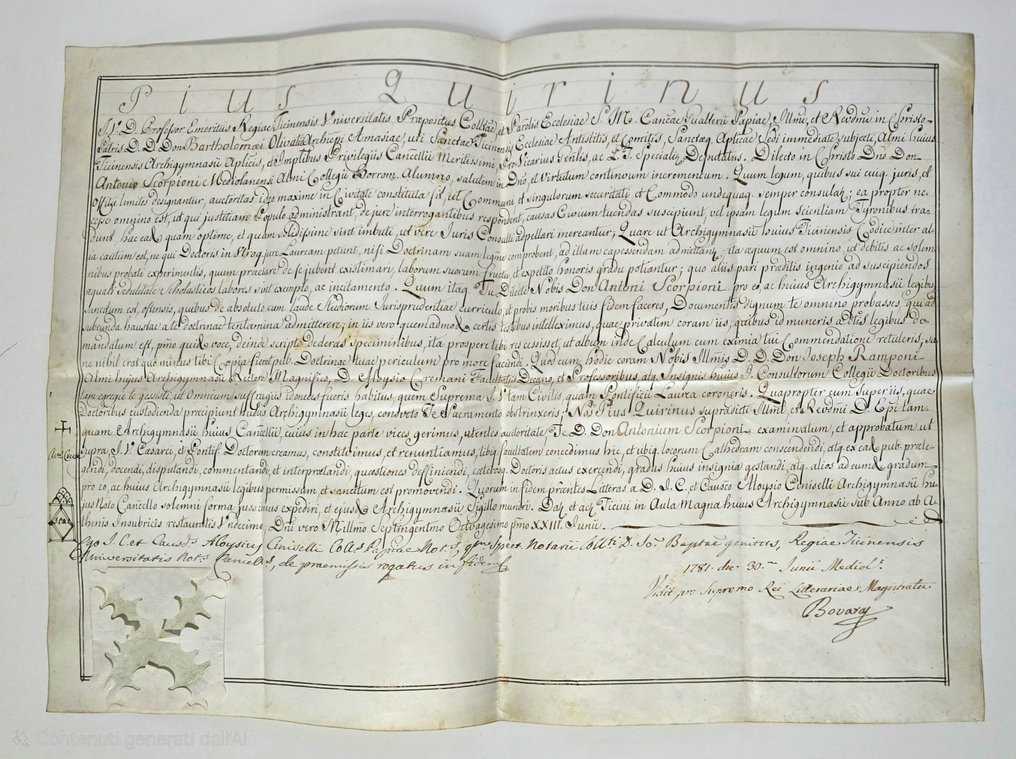 Pius Quirinus
J. V. D. Professor Emeritus Regiae Ticinensis Universitatis Praepositus Colltae et Parolis Ecclesiae S. M. Cancae Gualterii Papiae Illmi, et Revdmi in Christo
Patris D. D. Don Bartholomei Olivati Archiepi Amasiae, uti Sanctae Ticinensis Ecclesiae Antistitis et Comitis, Sanctaeq Aplicae Sedi immediate subjecti, Almi huius
Ticinensis Archigymnasii Aplicis, et Imptibus Privilegiis Cancellii Meritissimi Pro Vicarius Gentis, ac Lt Specialer Deputatus. Dilecto in Christo Dno Don
Antonio Scorpioni Mediolanensi Almi Collegii Borrom. Alumno, salutem in Dno, et virtutum continuum incrementum. Quum legum, quibus sui cuiq. juris, et
Officii limites designantur, auctoritas ideo maxime in Civitate constituta sit, ut Communi et singulorum securitati, et Commodo undequaq. semper consulat; ea propter ne-
cesse omnino est, ut qui justitiam Populo administrant, de jure interrogantibus respondent, causas Civium tuendas suscipiunt, vel ipsam legum scientiam Tyronibus tra-
dunt, hac eadē quam optime, et quam solidissime sint imbuti, ut vere Juris Consulti adpellari mereantur; Quare ut Archigymnasii Iovius Ticinensis Codice inter al-
ia cautum est, ne qui Doctoris in utroq. jure Lauream petunt, nisi Doctrinam suam legitime comprobent, ad illam capessendam admittant; ita aequum est omnino, ut debilis ac solem-
nibus probate experimentis, quum praeclare de se jubent existimari, laborum suorum fructu, et expetito honoris gradu potiantur; quo alii pari praediti ingenio ad suscipiendos
aequali sedulitate Scholasticos labores sint exemplo, ac incitamento. Quum itaq. Tu Dilecte Nobis Don Antoni Scorpioni pro eo, ac huius Archigymnasii legibus
sanctum est, ostensis, quibus de absoluto cum laude studiorum Jurisprudentiae curriculo, et probis moribus tuis fidem faceres, Documentis dignum te omnino probasses, qui ad
subeunda haustae a te doctrinae tentamina admitterere; in iis vero quemadmodū certis testibus intelleximus, quae privatim coram iis, quibus id muneris ab tis legibus de-
mandatum est, pmo quidē voce, deinde scripto dederas speciminibus, ita prospere tibi res cessisset, ut album inde Calculum cum eximia tui Commendatione retuleris, sa-
ne nihil erat quo minus tibi Copia fieret pub. Doctrinae tuae periculum pro more faciundi. Quod cum hodie coram Nobis Illmis D. D. Don Joseph Ramponi
Almi hujus Archigymnasii Rectore Magnifico, D. Aloysio Cremani Facultatis Decano, et Professoribus, atq. Insignis huius J. Consultorum Collegii Doctoribus
tam egregie te gesseris, ut Omnium suffragiis idoneus fueris habitus, quem Suprema J. V. tam Civilis, quam Pontificii Laurea coronaris. Quapropter cum super iis, quae
Doctoribus custodienda praecipiunt hujus Archigymnasii leges, consueto te Sacramento obstrinxeris; Nos Pius Quirinus supradicti Illmi, et Revdmi D. Epi tam-
quam Archigymnasii huius Cancellii, cuius in hac parte vices gerimus, utentes auctoritate Te D. Don Antonium Scorpioni examinatum, et approbatum ut
supra, J. V. Caesarei, et Pontif. Doctorem creamus, constituimus, et renuntiamus, tibiq. facultatem concedimus hic, et ubiq. locorum Cathedram conscendendi, atq. ex ea pub. praele-
gendi, docendi, disputandi, commentandi, et interpraetandi, quaestiones definiendi, caeterosq. Doctoris actus exercendi, gradus huius insignia gestandi, atq. alios ad eumdē gradum
pro eo, ac huius Archigymnasii legibus permissum, et sanctum est promovendi. Quorum in fidem pnentes Litteras a D. J. C. et Causco Aloysio Caniselli Archigymnasii hu-
jus Nosto Cancello solemni forma jussimus expediri, et ejusdē Archigymnasii Sigillo muniri. Dat. et act. Ticini in Aula Magna huius Archigymnasii sub Anno ab A-
thenis Insubricis restauratis Undecimo. Dni vero Millmo Septengentmo Octuagesimo pmo XXIII. Junii.
Ego J. C. et Causds Aloysius Caniselli Colls Papiae Nots qm Spect. Notarii Collti D. Jo. Baptae genitus, Regiae Ticinensis
Universitatis Nots Cancells, de praemissis rogatus in fidem
1781. die 30. Junii Mediol.
Vidit pro Supremo Rei Litterariae Magistratu
Bovara
Contenuti generati dall'AI